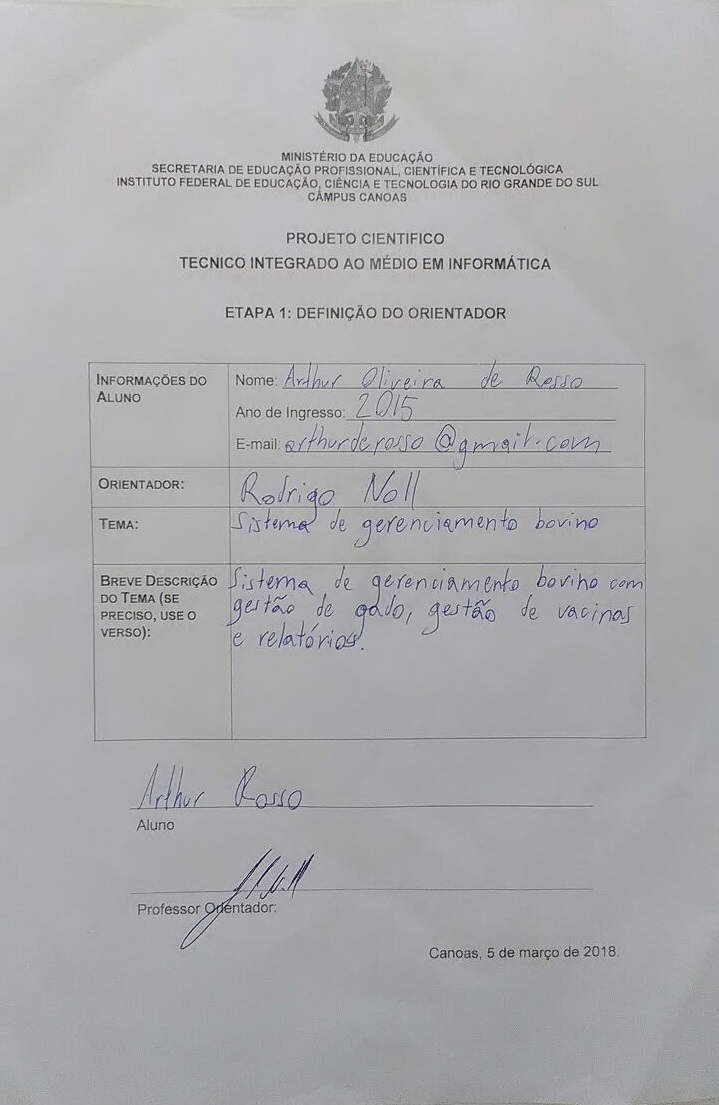 MINISTÉRIO DA EDUCAÇÃO
SECRETARIA DE EDUCAÇÃO PROFISSIONAL, CIENTÍFICA E TECNOLÓGICA
INSTITUTO FEDERAL DE EDUCAÇÃO, CIÊNCIA E TECNOLOGIA DO RIO GRANDE DO SUL
CÂMPUS CANOAS
PROJETO CIENTIFICO
TECNICO INTEGRADO AO MÉDIO EM INFORMÁTICA
ETAPA 1: DEFINIÇÃO DO ORIENTADOR
INFORMAÇÕES DO
ALUNO
Nome: Arthur Oliveira de Rosso
Ano de Ingresso: 2015
E-mail: arthurderosso@gmail.com
ORIENTADOR:
Rodrigo Noll
TEMA:
Sistema de gerenciamento bovino
BREVE DESCRIÇÃO
DO TEMA (SE
PRECISO, USE O
VERSO):
Sistema de gerenciamento bovino com
gestão de gado, gestão de vacinas
e relatórios.
Arthur Rosso
Aluno
Professor Orientador:
Canoas, 5 de março de 2018.